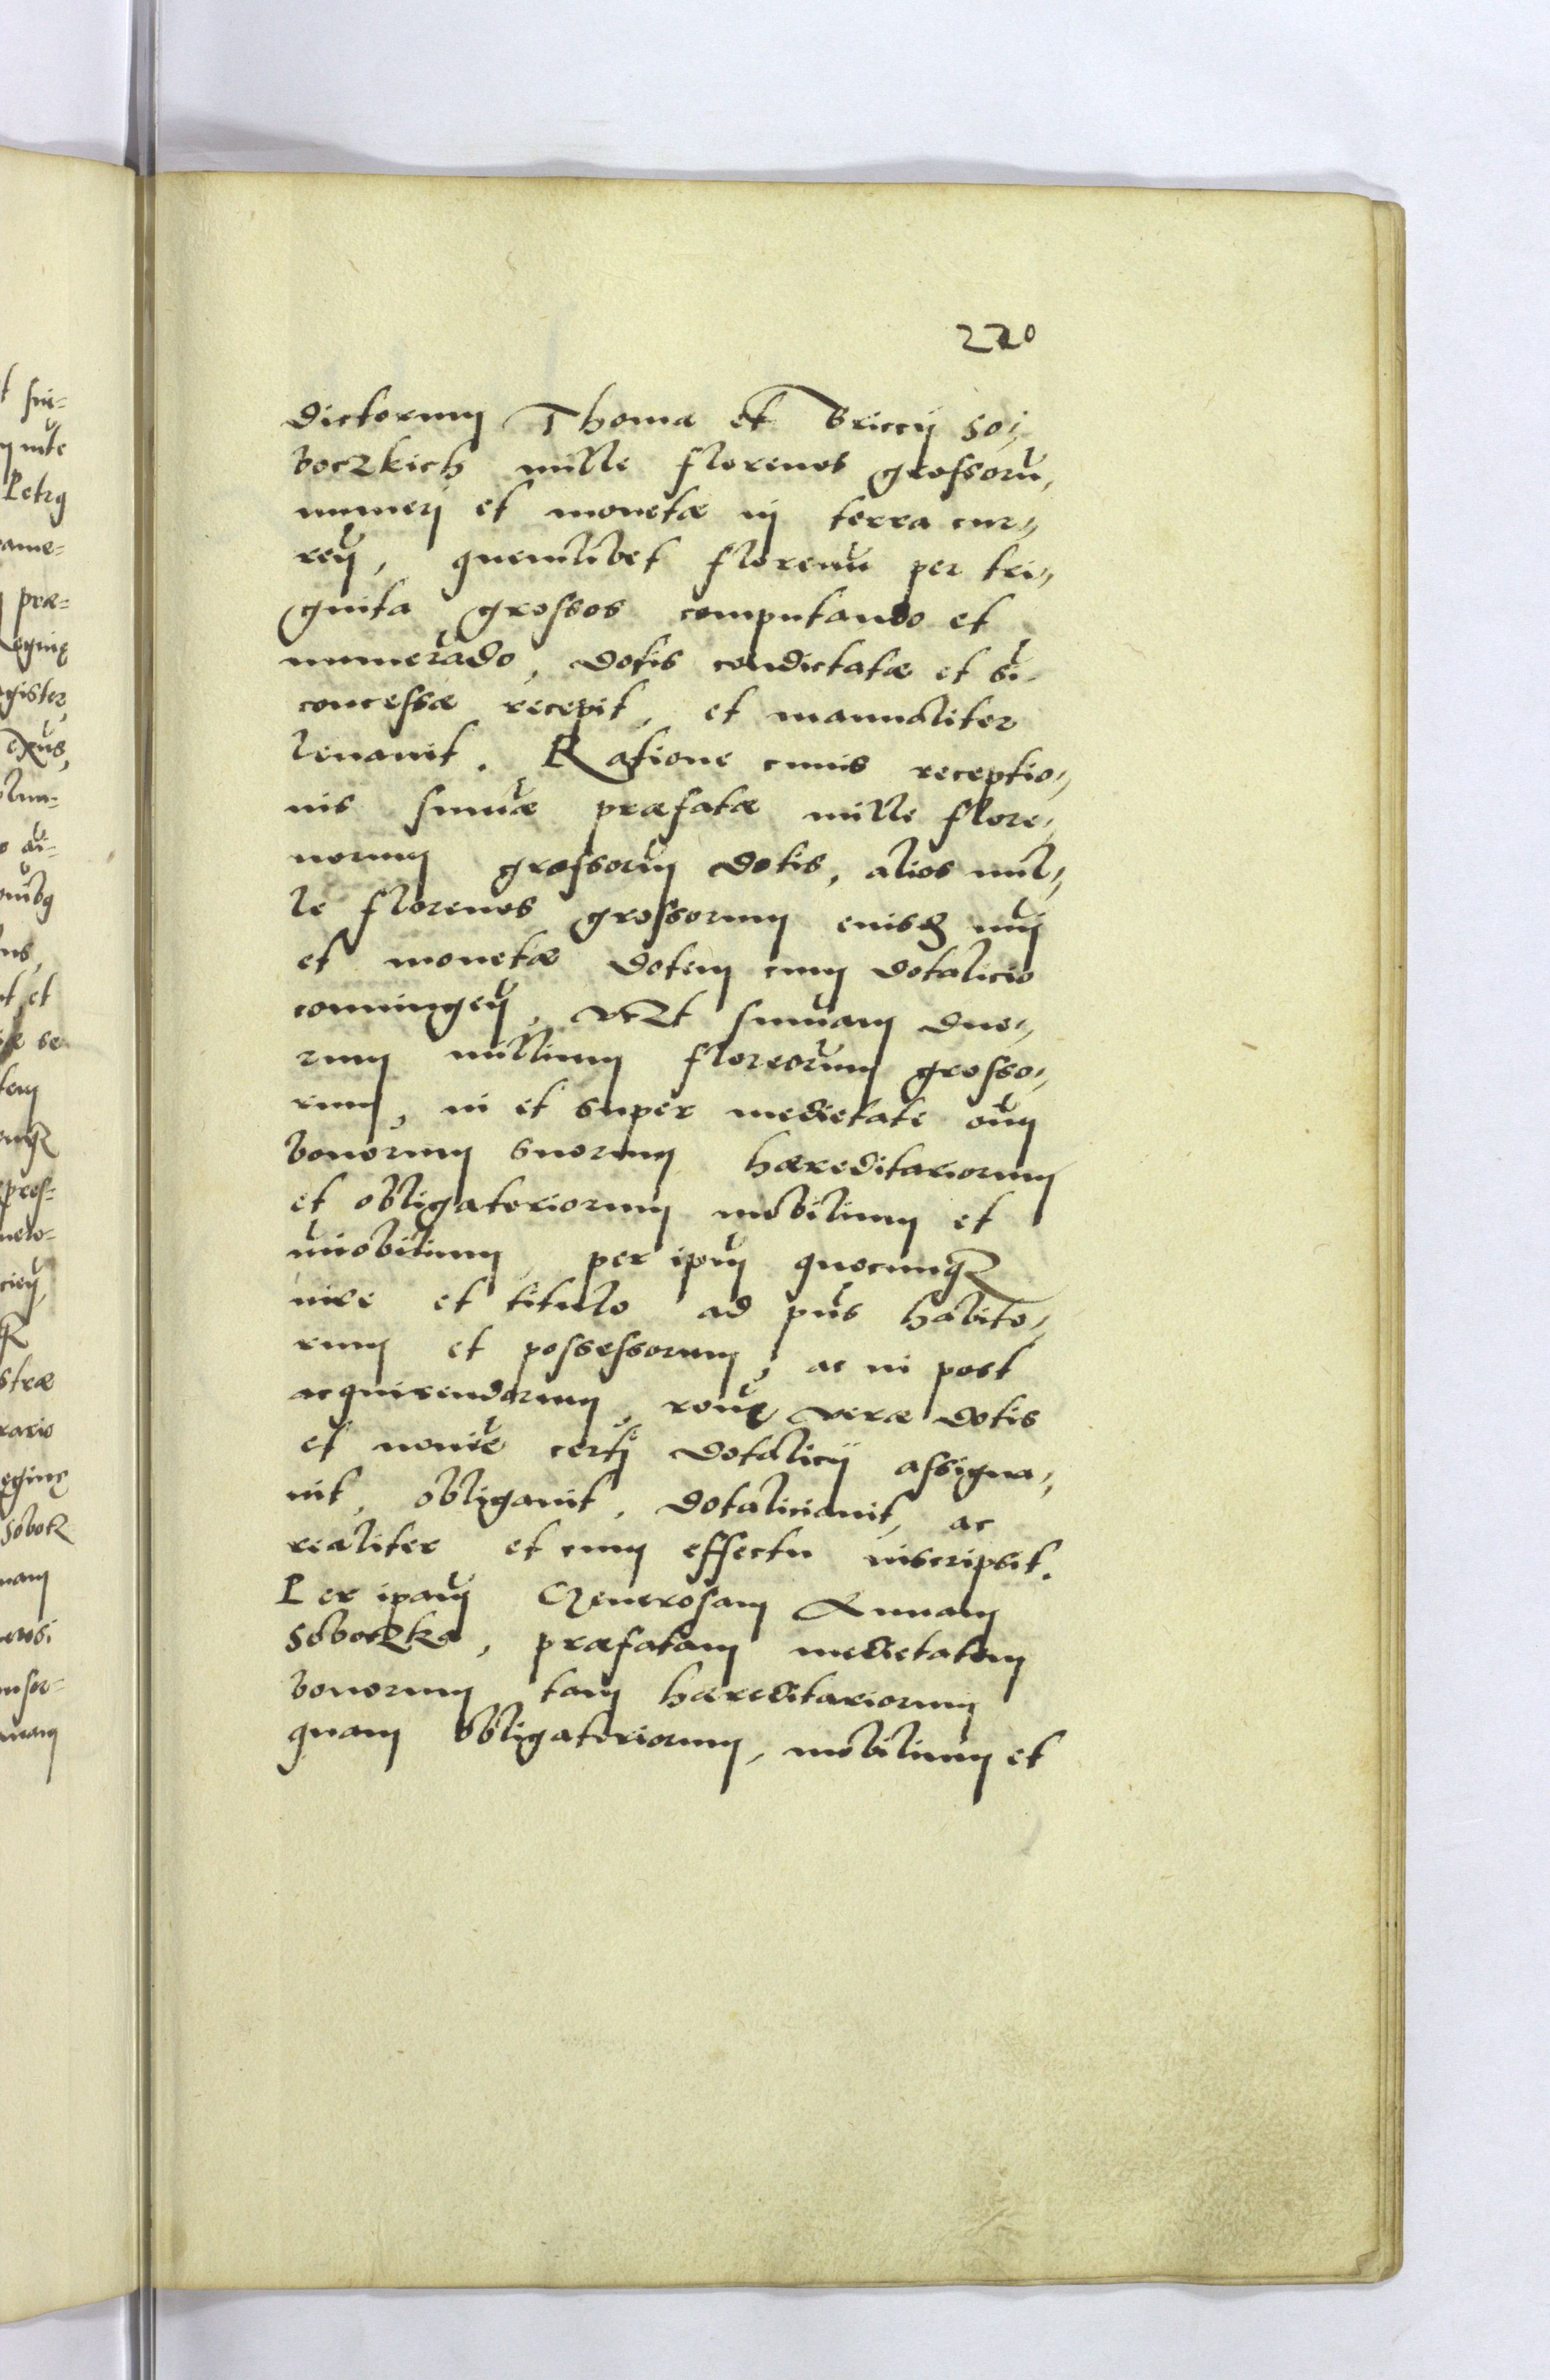 220
dictorum Thoma et Briccij So-
boczkich mille florenos grossorū,
numeri et monetæ in terra cur-
reñ, quemlibet florenū per tri-
ginta grossos computando et
numerādo, dotis condictatæ et si
concessæ recepit, et manualiter
leuauit. Ratione cuius receptio-
nis sum̄æ præfatæ mille flore-
norum grossorum̄ dotis, alios mil-
le florenos grossorum eiusd nūi
et monetæ dotem cum dotalicio
coniungeñ, vczt sum̄am duo-
rum millium floreorum̄ grosso-
rum, in et super medietate oīum
bonorum suorum hæreditariorum
et obligatoriorum mobilium et
im̄obilium, per ipm̄ quocunq
iure et titulo ad pn̄s habito-
rum et possessorum, ac in post
acquirendorum, rone veræ dotis
et noīe certi dotalicij assigna-
uit, obligauit, dotaliciauit, ac
realiter et cum effectu inscripsit.
Per ipam̄ Generosam Annam
Soboczka, præfatam medietatem
bonorum tam hæreditariorum
quam obligatoriorum, mobilium et